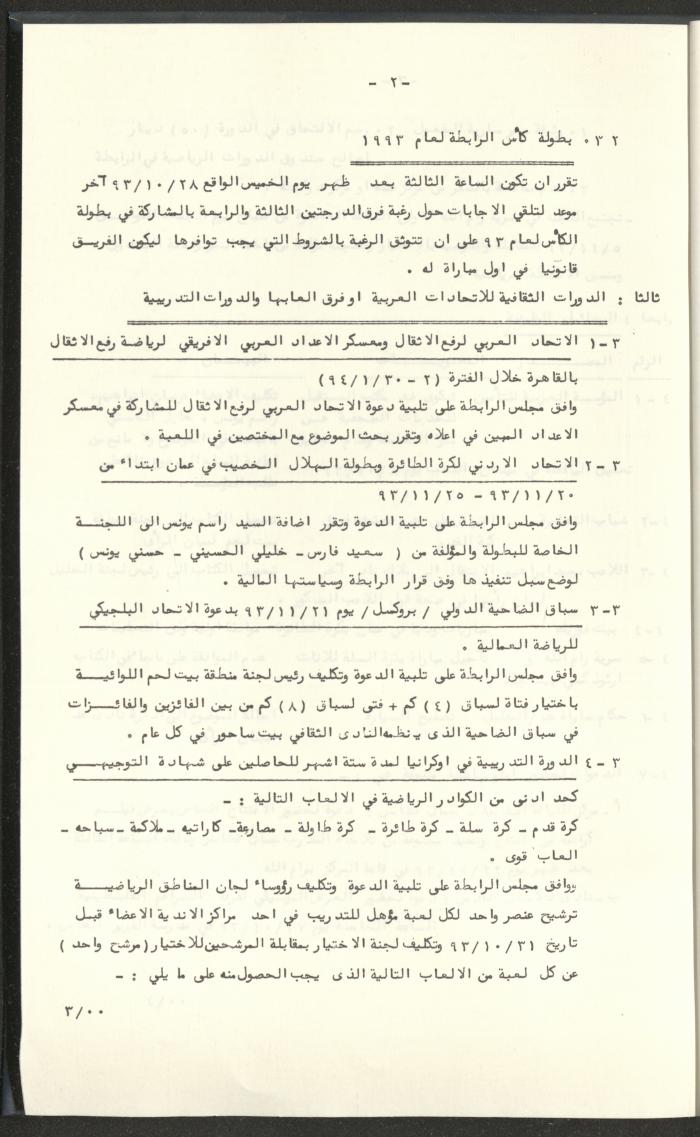 - ٢ -
٠٣٢ بطولة كأس الرابطة لعام ١٩٩٣
تقرر ان تكون الساعة الثالثة بعد ظهر يوم الخميس الواقع ٩٣/١٠/٢٨ آخر
موعد لتلقي الاجابات حول رغبة فرق الدرجتين الثالثة والرابعة بالمشاركة في بطولة
الكأس لعام ٩٣ على ان تتوثق الرغبة بالشروط التي يجب توافرها ليكون الفريق
قانونيا في اول مباراة له .
ثالثا : الدورات الثقافية للاتحادات العربية او فرق العابها والدورات التدريبية
٣-١ الاتحاد العربي لرفع الاثقال ومعسكر الاعداد العربي الافريقي لرياضة رفع الاثقال
بالقاهرة خلال الفترة (٢ - ٩٤/١/٣٠)
وافق مجلس الرابطة على تلبية دعوة الاتحاد العربي لرفع الاثقال للمشاركة في معسكر
الاعداد المبين في اعلاه وتقرر بحث الموضوع مع المختصين في اللعبة .
٣-٢ الاتحاد الاردني لكرة الطائرة وبطولة الهلال الخصيب في عمان ابتداء من
٩٣/١١/٢٥ - ٩٣/١١/٢٠
وافق مجلس الرابطة على تلبية الدعوة وتقرر اضافة السيد راسم يونس الى اللجنة
الخاصة للبطولة والمؤلفة من ( سعيد فارس - خليلي الحسيني - حسني يونس )
لوضع سبل تنفيذها وفق قرار الرابطة وسياستها المالية .
٣-٣ سباق الضاحية الدولي / بروكسل / يوم ٩٣/١١/٢١ بدعوة الاتحاد البلجيكي
للرياضة العمالية .
وافق مجلس الرابطة على تلبية الدعوة وتكليف رئيس لجنة منطقة بيت لحم اللوائية
باختيار فتاة لسباق (٤) كم + فتى لسباق (٨) كم من بين الفائزين والفائزات
في سباق الضاحية الذى ينظمه النادى الثقافي بيت ساحور في كل عام .
٣-٤ الدورة التدريبية في اوكرانيا لمدة ستة اشهر للحاصلين على شهادة التوجيهي
كحد ادنى من الكوادر الرياضية في الالعاب التالية : -
كرة قدم - كرة سلة - كرة طائرة - كرة طاولة - مصارعة - كاراتيه - ملاكمة - سباحه -
العاب قوى .
ووافق مجلس الرابطة على تلبية الدعوة وتكليف رؤوساء لجان المناطق الرياضية
ترشيح عنصر واحد لكل لعبة مؤهل للتدريب في احد مراكز الاندية الاعضاء قبل
تاريخ ٩٣/١٠/٣١ وتكليف لجنة الاختيار بمقابلة المرشحين للاختيار (مرشح واحد )
عن كل لعبة من الالعاب التالية الذى يجب الحصول منه على ما يلي : -
٣/٠٠